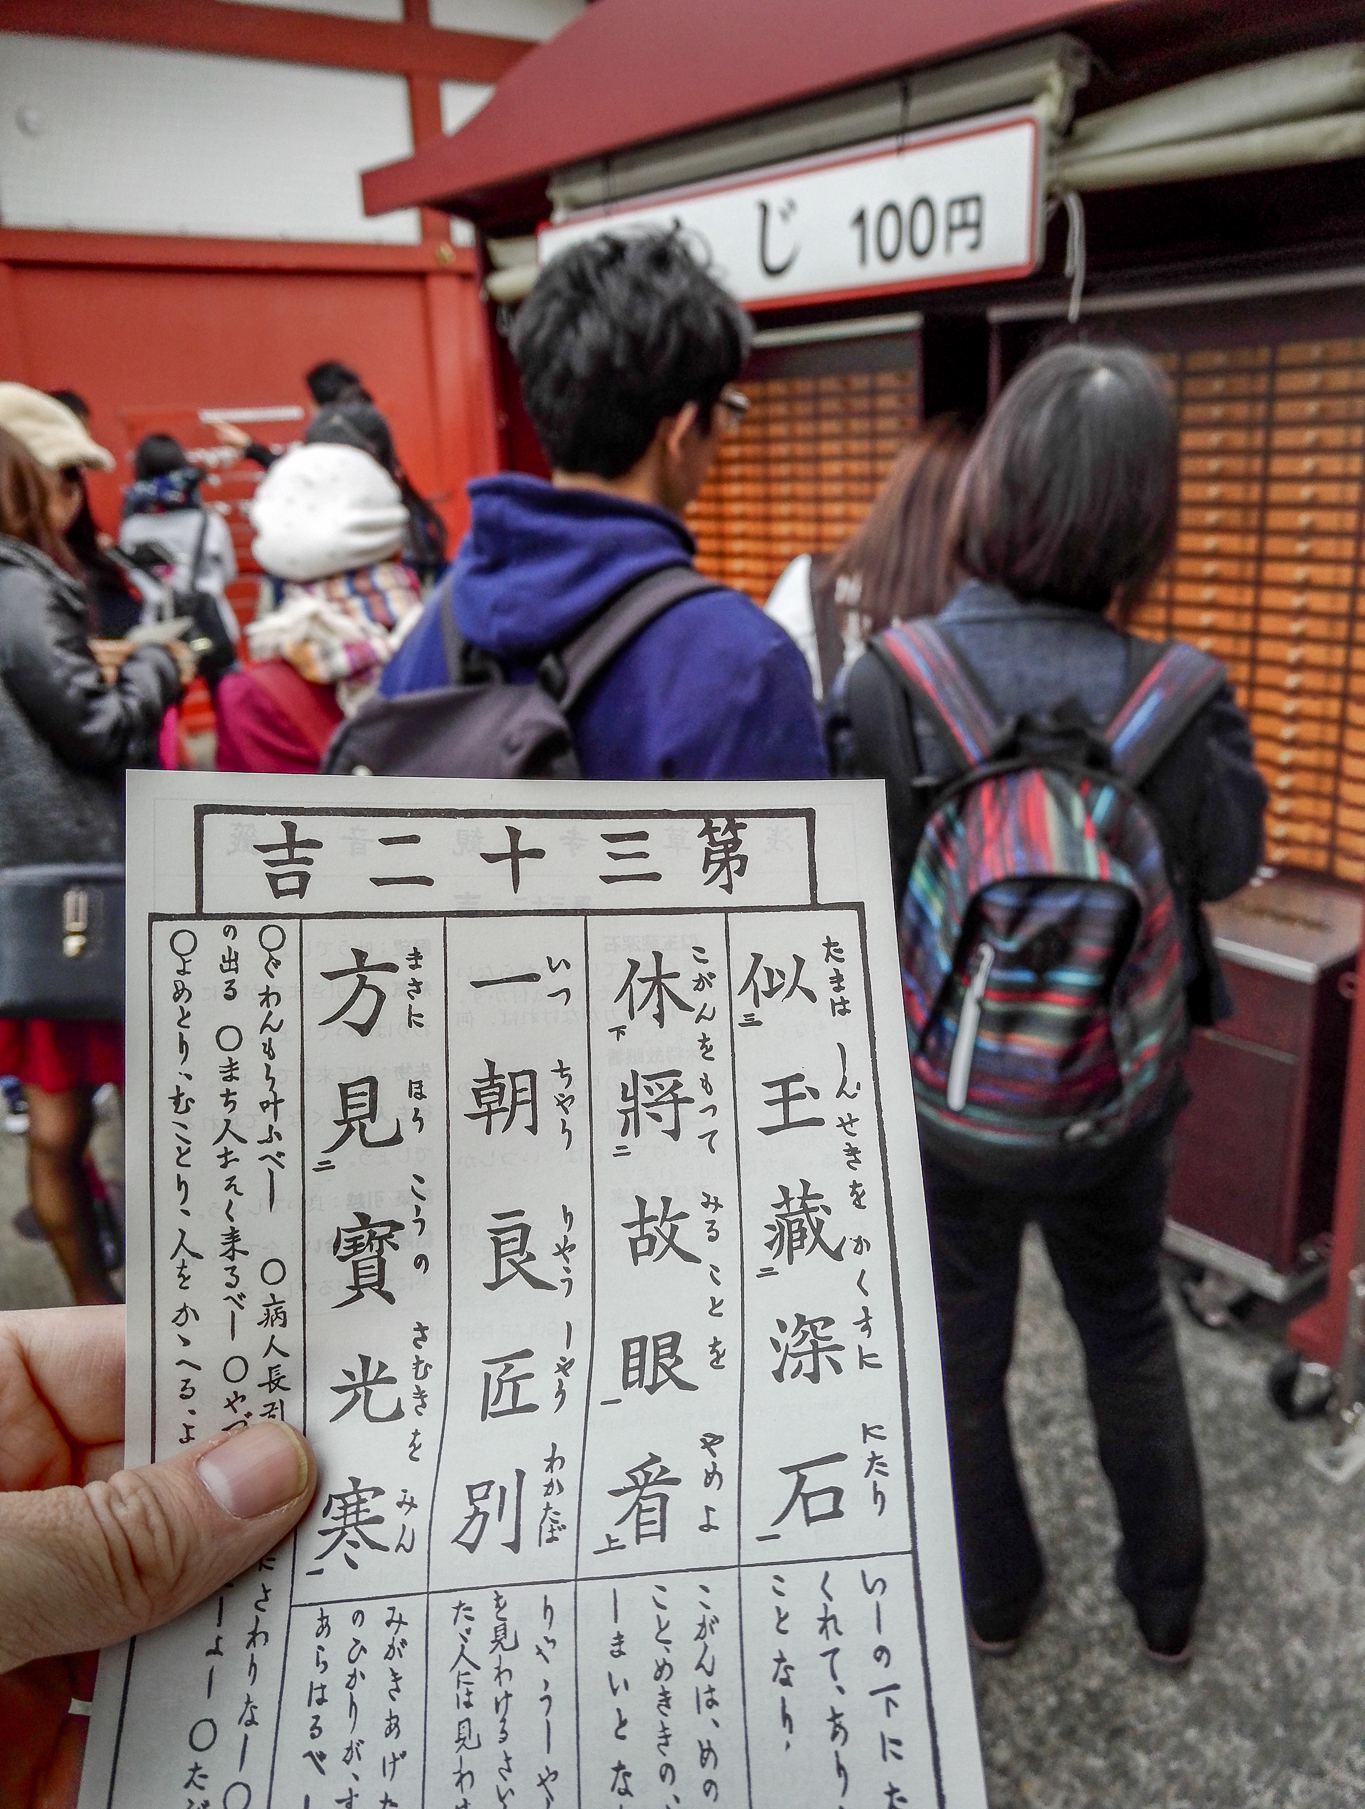 じ 100円
第三十二吉
似三玉藏二深石一
たまは しんせきを かくすに にたり
いしの下にた
くれて、あり、
ことなり、
休下將二故眼一看上
こがんをもつて みることを やめよ
こがんは、めの
こと、めききの、
しまいとな
一朝良匠別
いつ ちやう りやう しやう わかたば
りやうしや
を見わけるさい
たゞ人には見わけ
方見二寶光寒一
まさに ほう こうの さむきを みん
みがきあげた
のひかりが、す
あらはるべし
○ぐわんもう叶ふべし ○病人長引
の出る ○まち人おそく来るべし ○やづ
たさわりなし○
○よめとり、むことり、人をかゝへる、よ
しよし ○たび